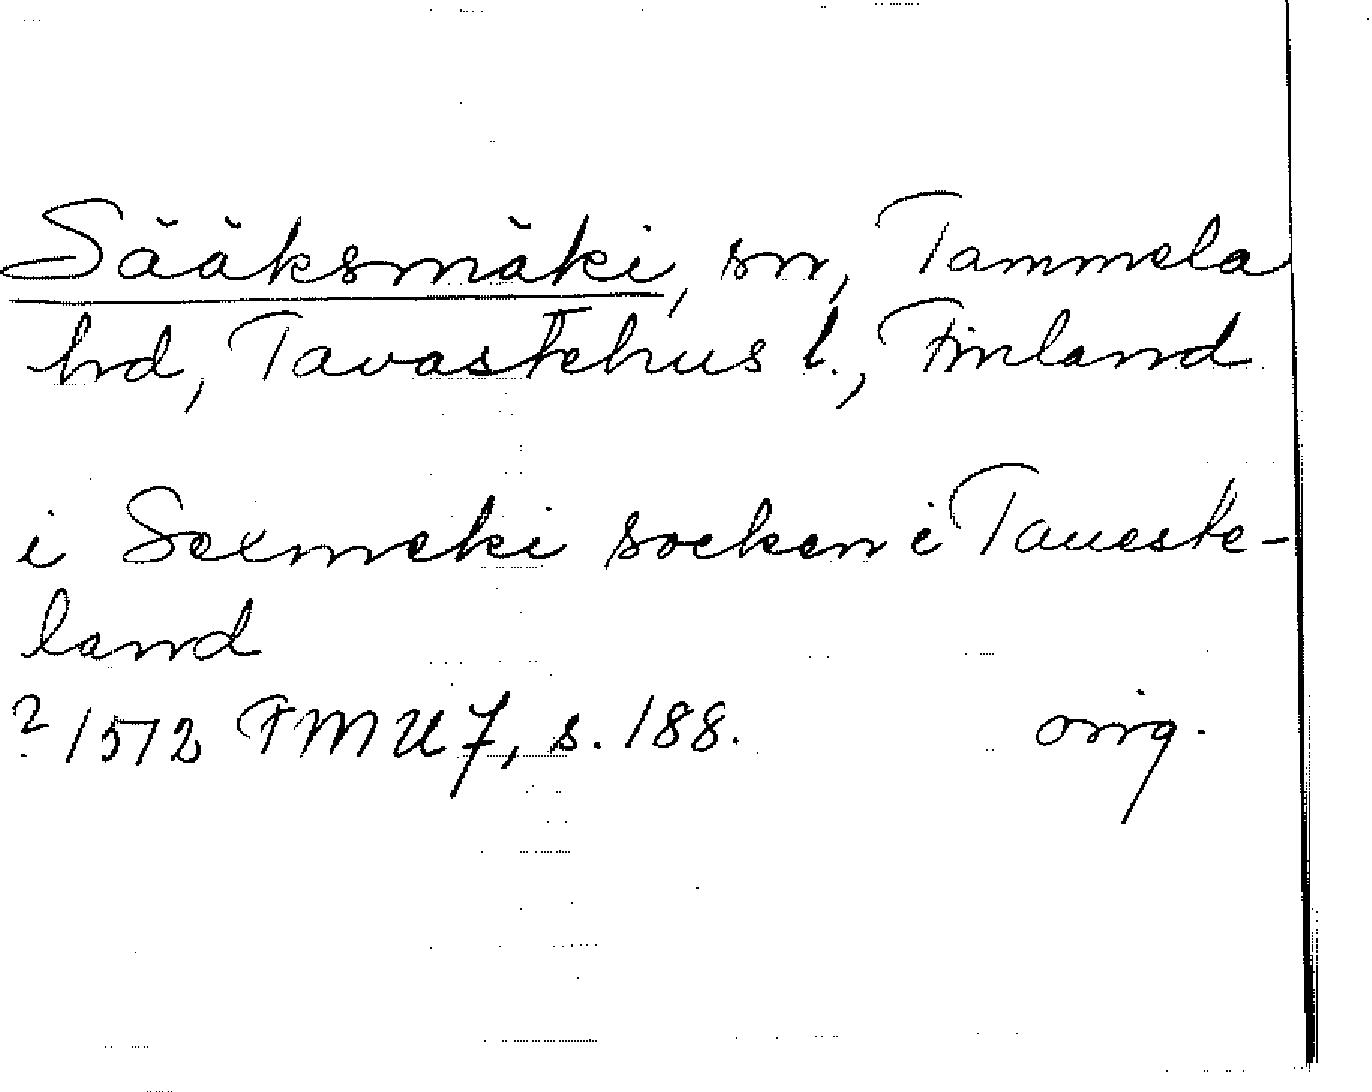 Sääksmäki, sn, Tammela
hd, Tavastehus l., Finland
i Sexmeki socken i Taueste-
land
? 1572 FMU 7, s. 188. orig.